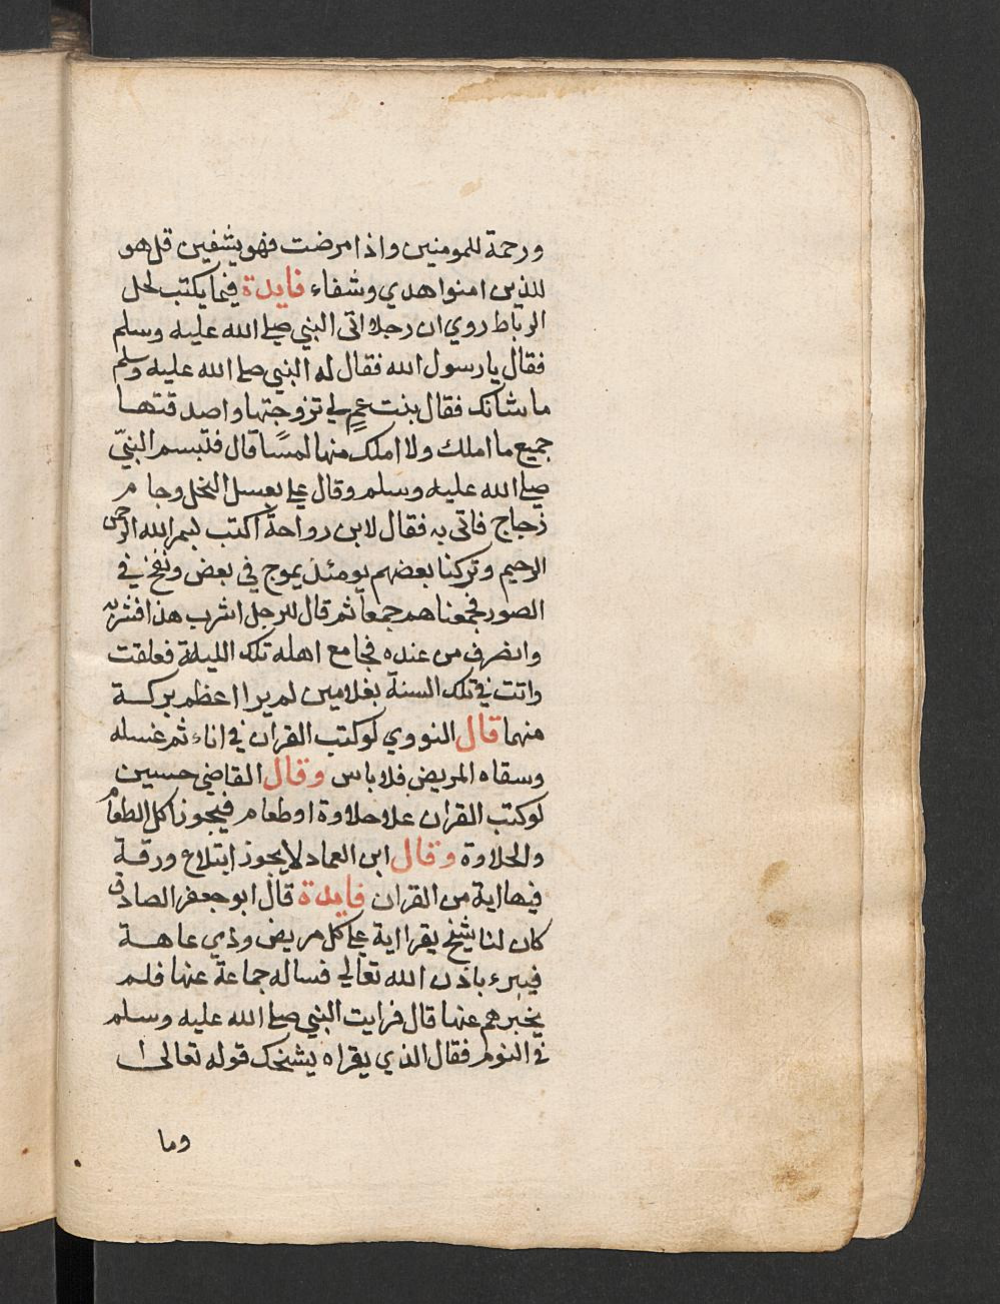 ورحمة للمومنين واذا مرضت فهو يشفين قل هو
للذين امنوا هدي وشفاء فايدة فيما يكتب لحل
الرباط روي ان رجلا اتى النبي صلے الله عليه وسلم
فقال يا رسول الله فقال له النبي صلے الله عليه وسلم
ما شانك فقال بنت عمٍ لي تزوجتها واصدقتها
جميع ما املك ولا املك منها لمسًا قال فتبسم النبيّ
صلے الله عليه وسلم وقال علي بعسل النحل وجام
زجاج فاتى به فقال لابن رواحة اكتب بسم الله الرحمن
الرحيم وتركنا بعضهم يومئذ يموج في بعض ونفخ في
الصور فجمعناهم جمعا ثم قال للرجل اشرب هذا فشربه
وانصرف من عنده فجامع اهله تلك الليلة فعلقت
واتت في تلك السنة بغلامين لم ير اعظم بركة
منهما قال النووي لو كتب القران في اناء ثم غسله
وسقاه المريض فلا باس وقال القاضي حسين
لو كتب القران علا حلاوة او طعام فيجوز اكل الطعام
والحلاوة وقال ابن العماد لا يجوز ابتلاع ورقة
فيها اية من القران فايدة قال ابو جعفر الصادق
كان لنا شيخ يقرا اية علي كل مريض وذي عاهة
فيبرء باذن الله تعالي فساله جماعة عنها فلم
يخبرهم عنها قال فرايت النبي صلے الله عليه وسلم
في النوم فقال الذي يقراه شيخك قوله تعالى
وما